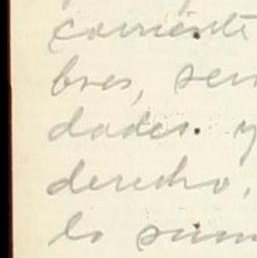 corriente
bres, sen
dades. y
derecho,
lo sum